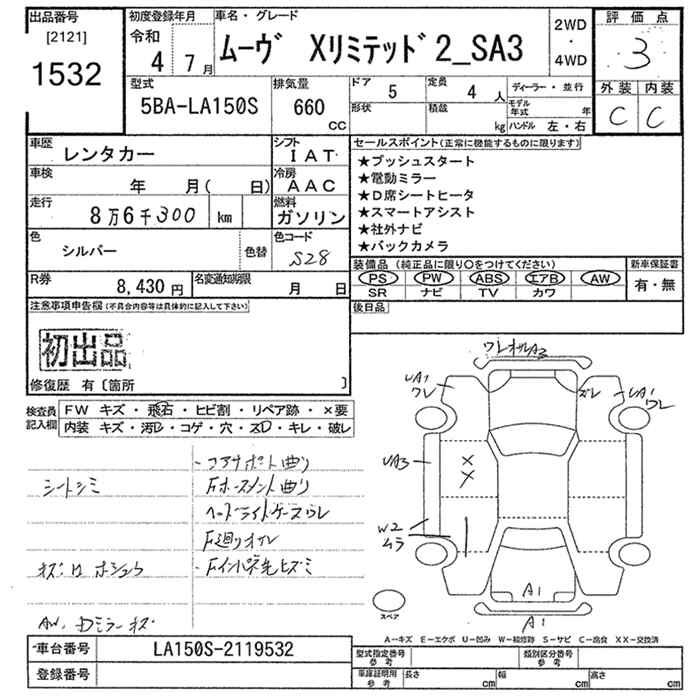 出品番号
[2121]
1532
初度登録年月
令和
4年 7月
車名・グレード
ムーヴ Xリミテッド2_SA3
2WD
・
4WD
評価点
3
外装 内装
C C
型式
5BA-LA150S
排気量
660
CC
ドア 5
定員 4人
形状
積載 kg
ディーラー・並行
モデル年式 年
ハンドル 左・右
車歴
レンタカー
シフト
IAT
車検
年 月( 日)
冷房
AAC
走行
8万6千300 km
燃料
ガソリン
色
シルバー
色替
色コード
S28
R券
8,430円
名変通知期限
月 日
セールスポイント(正常に機能するものに限ります)
★プッシュスタート
★電動ミラー
★D席シートヒータ
★スマートアシスト
★社外ナビ
★バックカメラ
装備品 (純正品に限り○をつけてください)
PS PW ABS エアB AW
SR ナビ TV カワ
新車保証書
有・無
後日品
注意事項申告欄(不具合内容等は具体的に記入して下さい)
初出品
修復歴 有〔箇所 〕
検査員記入欄
FW キズ・飛石・ヒビ割・リペア跡・×要
内装 キズ・汚レ・コゲ・穴・スレ・キレ・破レ
シートシミ
・コアサポート曲り
Fホースメント曲り
ヘッドライトケースワレ
F廻りオレ
・Fインパネ先ヒズミ
AW、Dミラーキズ
ワレ オレ A3
UA1
ワレ
ズレ
UA1
ワレ
UA3
XX
W2
ムラ
A1
A1
スペア
A-キズ E-エクボ U-凹み W-補修跡 S-サビ C-腐食 XX-交換済
車台番号
LA150S-2119532
登録番号
型式指定番号
参考
類別区分番号
参考
車庫証明用
参考
長さ cm
幅 cm
高さ cm